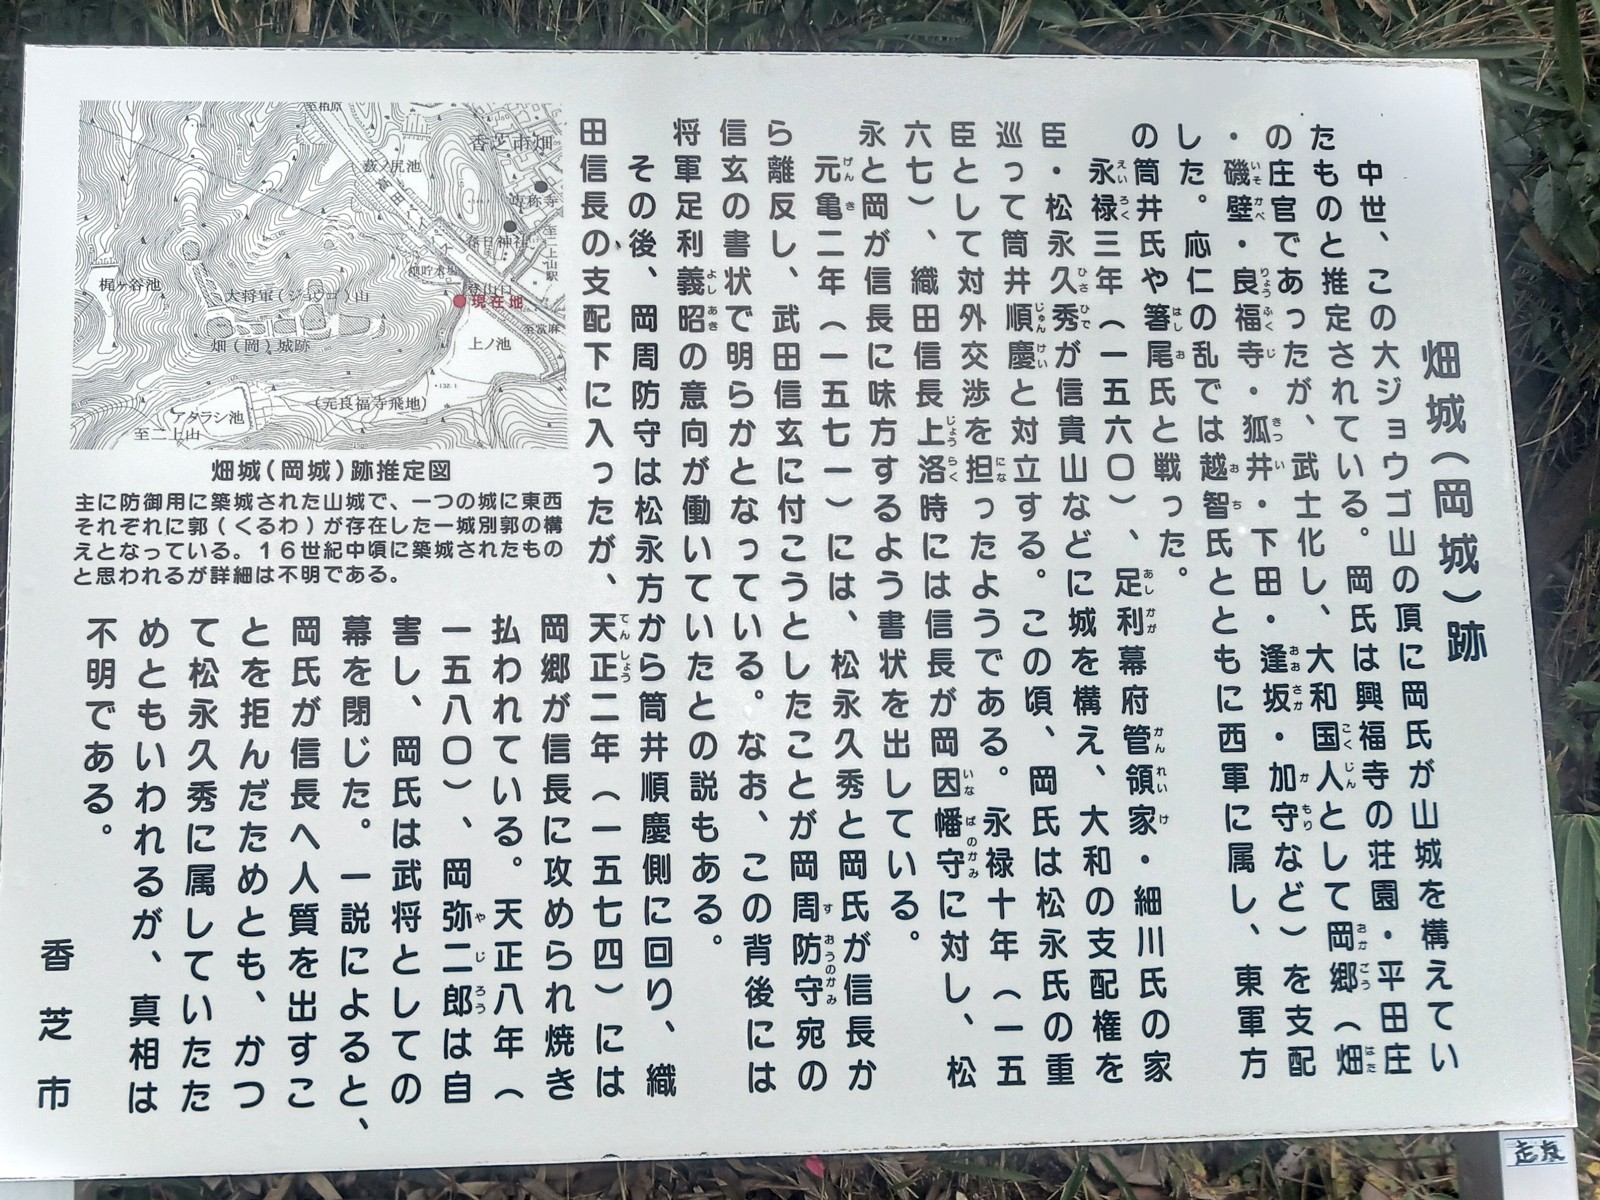 畑城（岡城）跡
中世、この大ジョウゴ山の頂に岡氏が山城を構えてい
たものと推定されている。岡氏は興福寺の荘園・平田庄
の庄官であったが、武士化し、大和国人として岡郷（畑
・磯壁・良福寺・狐井・下田・逢坂・加守など）を支配
した。応仁の乱では越智氏とともに西軍に属し、東軍方
の筒井氏や箸尾氏と戦った。
永禄三年（一五六〇）、足利幕府管領家・細川氏の家
臣・松永久秀が信貴山などに城を構え、大和の支配権を
巡って筒井順慶と対立する。この頃、岡氏は松永氏の重
臣として対外交渉を担ったようである。永禄十年（一五
六七）、織田信長上洛時には信長が岡因幡守に対し、松
永と岡が信長に味方するよう書状を出している。
元亀二年（一五七一）には、松永久秀と岡氏が信長か
ら離反し、武田信玄に付こうとしたことが岡周防守宛の
信玄の書状で明らかとなっている。なお、この背後には
将軍足利義昭の意向が働いていたとの説もある。
その後、岡周防守は松永方から筒井順慶側に回り、織
田信長の支配下に入ったが、天正二年（一五七四）には
岡郷が信長に攻められ焼き
払われている。天正八年（
一五八〇）、岡弥二郎は自
害し、岡氏は武将としての
幕を閉じた。一説によると、
岡氏が信長へ人質を出すこ
とを拒んだためとも、かつ
て松永久秀に属していたた
めともいわれるが、真相は
不明である。
香芝市
至柏原
香芝市畑
藪ノ尻池
専称寺
春日神社
至二上山駅
畑貯水場
登山口
現在地
至當麻
上ノ池
梶ヶ谷池
大将軍（ジョウゴ）山
畑（岡）城跡
（元良福寺飛地）
アタラシ池
至二上山
畑城（岡城）跡推定図
主に防御用に築城された山城で、一つの城に東西
それぞれに郭（くるわ）が存在した一城別郭の構
えとなっている。１６世紀中頃に築城されたもの
と思われるが詳細は不明である。